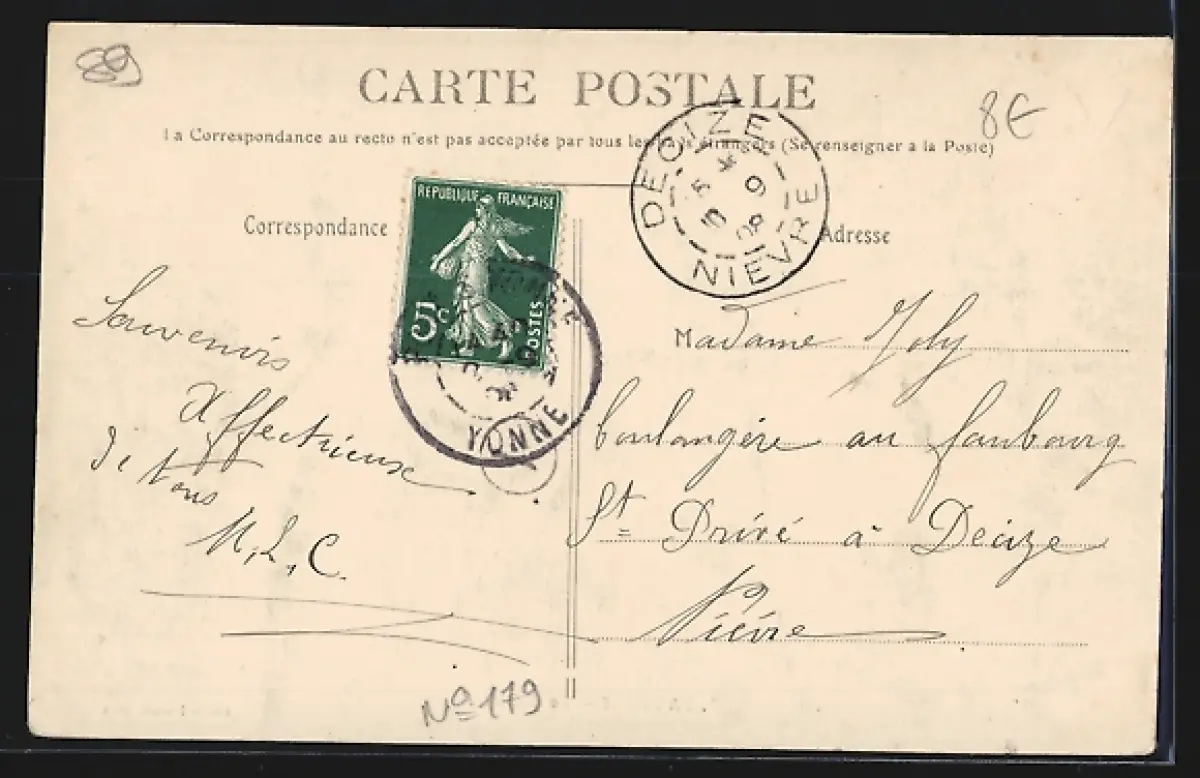 89
CARTE POSTALE
8€
La Correspondance au recto n'est pas acceptée par tous les pays étrangers (Se renseigner a la Poste)
DECIZE
9
08
NIEVRE
REPUBLIQUE FRANÇAISE
5c
POSTES
YONNE
Correspondance
Souvenirs
Affectueux
de tous
M. L. C.
Adresse
Madame Joly
boulangère au faubourg
St Privé à Decize
Nièvre
No 179